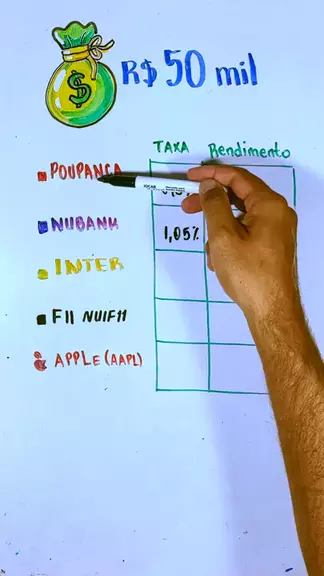 R$ 50 mil
TAXA Rendimento
POUPANÇA
NUBANK 1,05%
INTER
FII NUIF11
APPLE (AAPL)